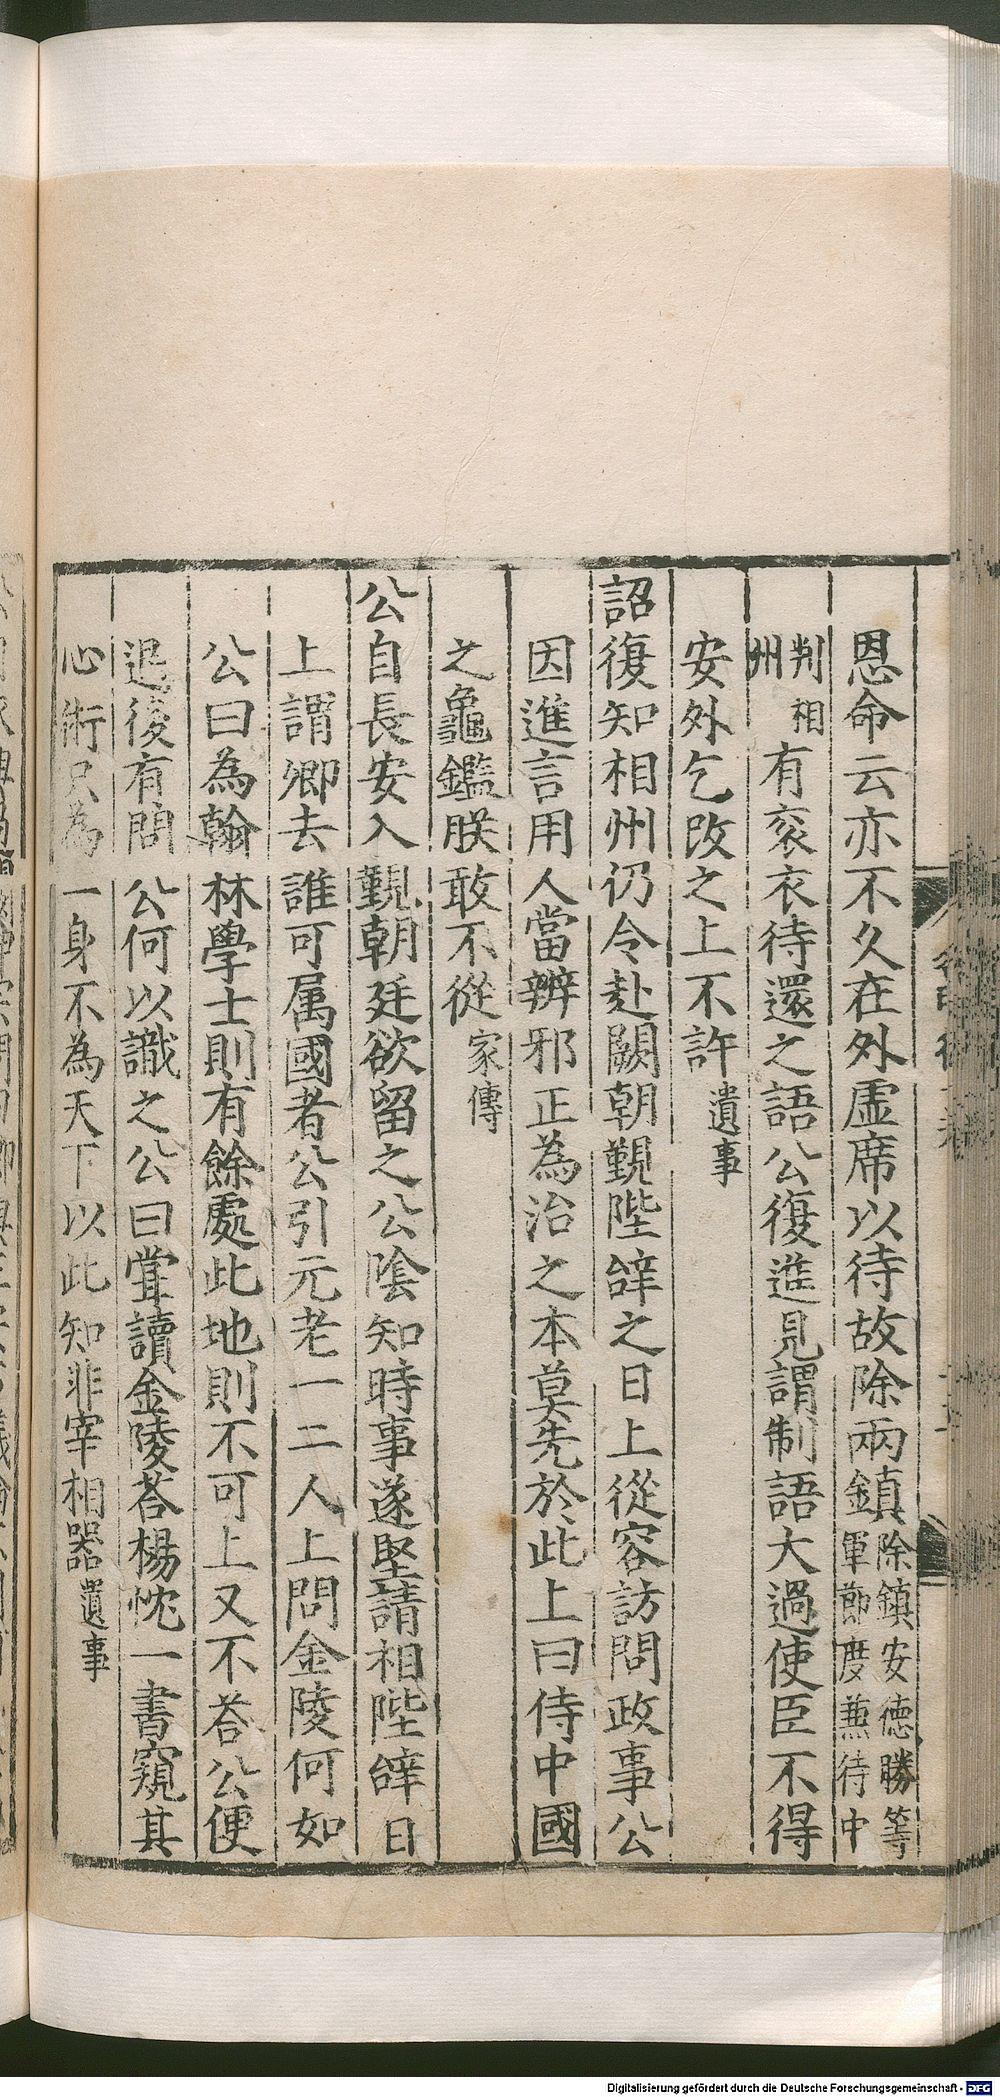 恩命云亦不久在外虚席以待故除兩鎮除鎮安德勝等軍節度兼待中
判相州有衮衣待還之語公復進見謂制語大過使臣不得
安外乞改之上不許遺事
詔復知相州仍令赴闕朝覲陛辭之日上從容訪問政事公
因進言用人當辨邪正為治之本莫先於此上曰侍中國
之龜鑑朕敢不從家傳
公自長安入覲朝廷欲留之公陰知時事遂堅請相陛辭日
上謂卿去誰可属國者公引元老一二人上問金陵何如
公曰為翰林學士則有餘處此地則不可上又不荅公便
退後有問公何以識之公曰甞讀金陵荅楊忱一書窺其
心術只為一身不為天下以此知非宰相器遺事
Digitalisierung gefördert durch die Deutsche Forschungsgemeinschaft - DFG